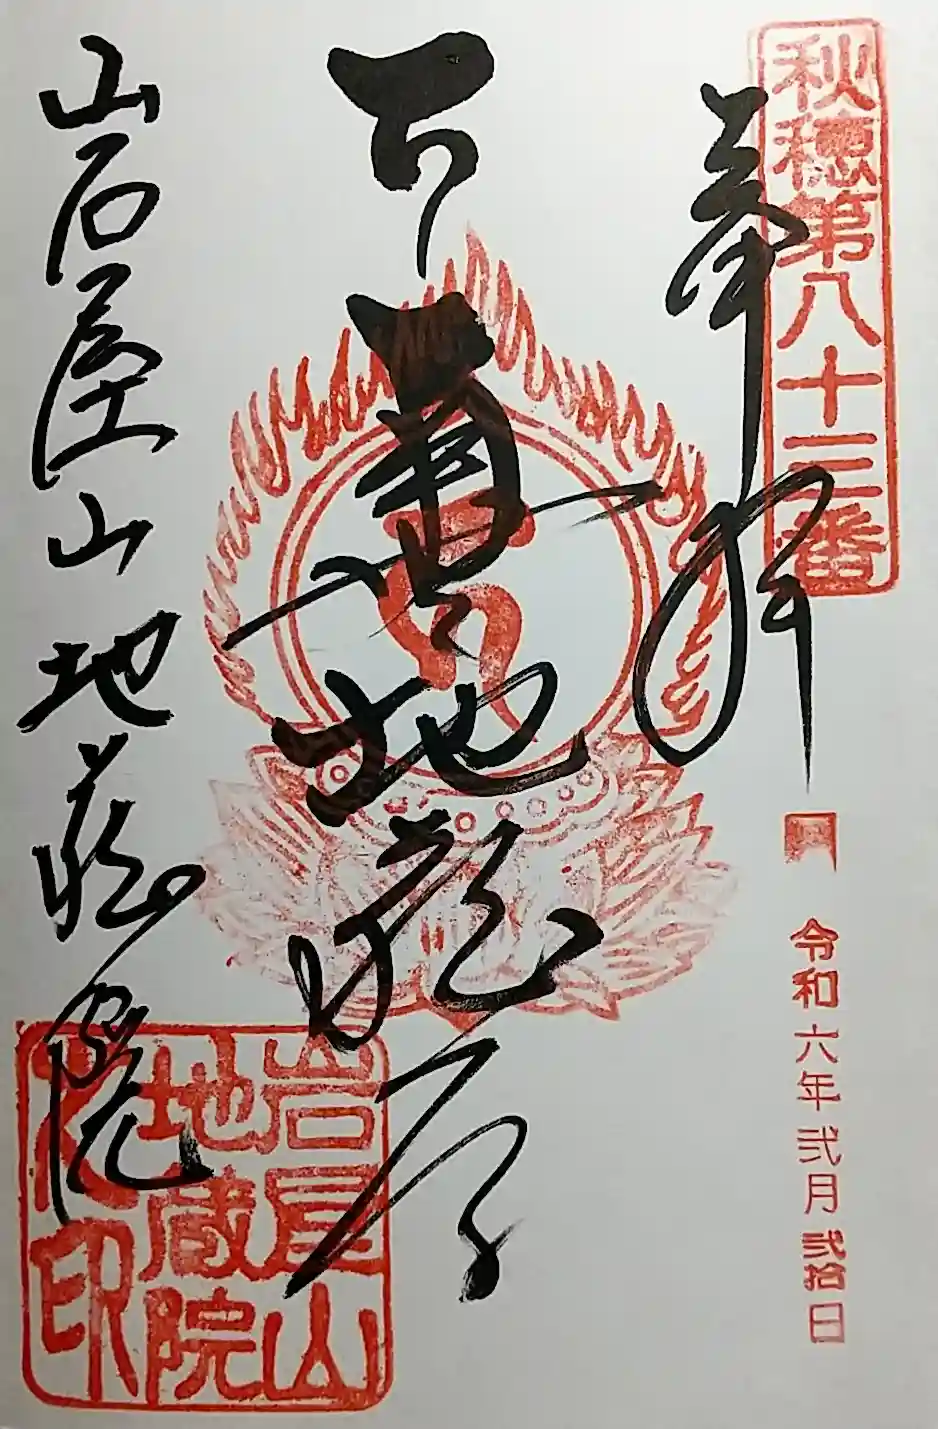 秋穂第八十三番
奉拝
令和六年弐月弐拾日
地蔵尊
岩屋山 地蔵院
岩屋山
地蔵院
之印